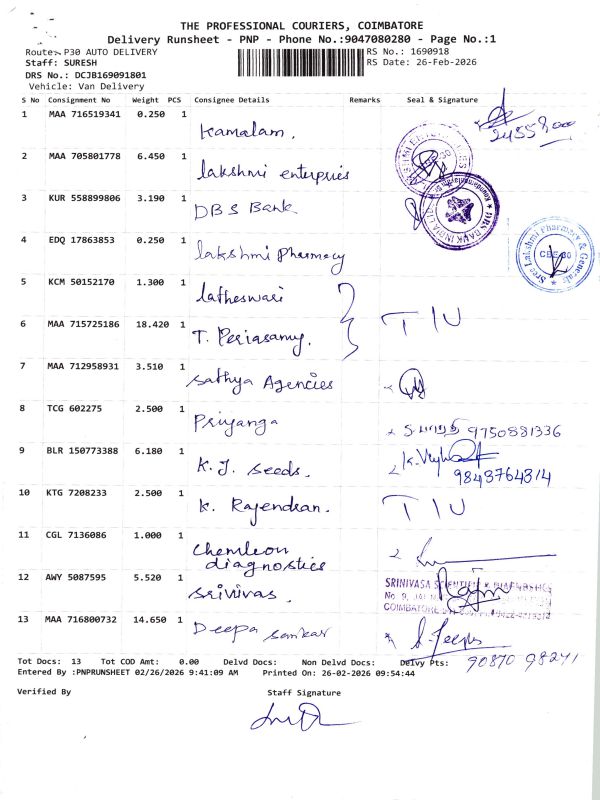 THE PROFESSIONAL COURIERS, COIMBATORE
Delivery Runsheet - PNP - Phone No.:9047080280 - Page No.:1
Route:- P30 AUTO DELIVERY
RS No.: 1690918
Staff: SURESH
RS Date: 26-Feb-2026
DRS No.: DCJB169091801
Vehicle: Van Delivery
S No Consignment No Weight PCS Consignee Details Remarks Seal & Signature
1 MAA 716519341 0.250 1 Kamalam.
2 MAA 705801778 6.450 1 lakshmi enterpries
3 KUR 558899806 3.190 1 DBS Bank
4 EDQ 17863853 0.250 1 lakshmi Pharmacy
Sree Lakshmi Pharmacy & Generals
CBE-30
5 KCM 50152170 1.300 1 latheswari
6 MAA 715725186 18.420 1 T. Periasamy. TIU
7 MAA 712958931 3.510 1 Sathya Agencies
8 TCG 602275 2.500 1 Priyanga 9750881336
9 BLR 150773388 6.180 1 K.J. Seeds. 9843764314
10 KTG 7208233 2.500 1 K. Rajendran. TIU
11 CGL 7136086 1.000 1 Chemleon
diagnostics
12 AWY 5087595 5.520 1 Srinivas.
SRINIVASA
COIMBATORE
13 MAA 716800732 14.650 1 Deepa Sankar
90870 98241
Tot Docs: 13 Tot COD Amt: 0.00 Delvd Docs: Non Delvd Docs: Delvy Pts:
Entered By :PNPRUNSHEET 02/26/2026 9:41:09 AM Printed On: 26-02-2026 09:54:44
Verified By Staff Signature